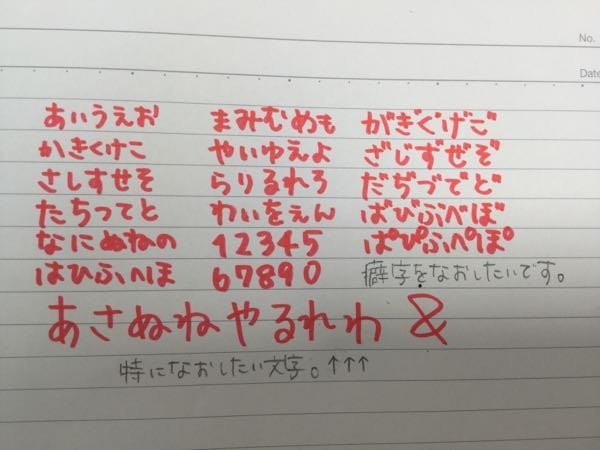 No.
Date
あいうえお まみむめも がぎぐげご
かきくけこ やいゆえよ ざじずぜぞ
さしすせそ らりるれろ だぢづでど
たちってと わいをえん ばびぶべぼ
なにぬねの 12345 ぱぴぷぺぽ
はひふへほ 67890 癖字をなおしたいです。
あさぬねやるれわ &
特になおしたい文字。↑↑↑